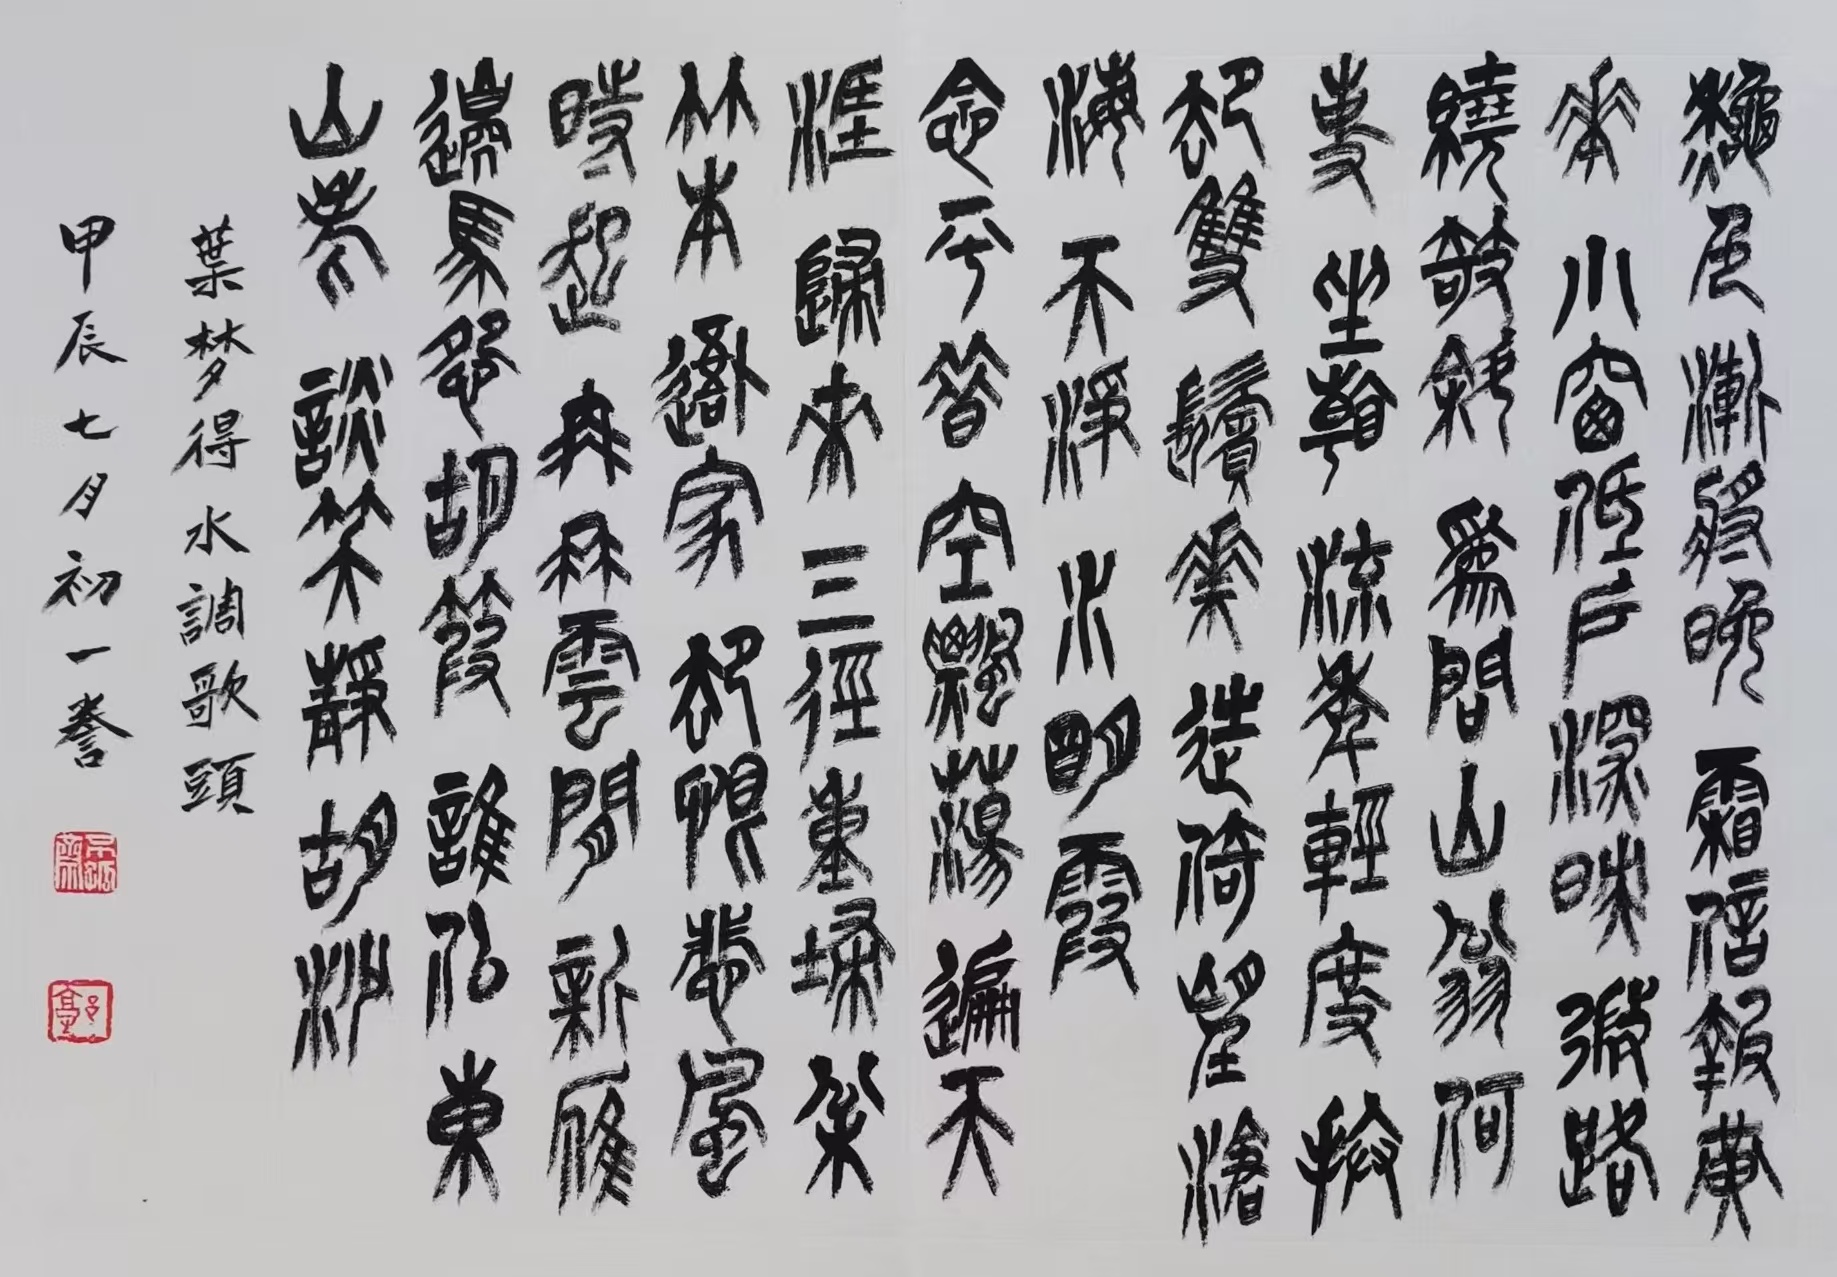 龝色漸將晚 霜信報黄
華 小窗低戶深映 微路
繞敧斜 為問山翁何
事 坐看流年輕度 拚
却雙鬢華 徙倚望滄
海 天淨 水明霞
念平昔 空飄蕩 遍天
涯 歸來 三徑重掃 松
竹本 吾家 却恨悲風
時起 冉冉雲間 新雁
邊馬怨胡笳 誰似東
山老 談笑靜胡沙
葉梦得水調歌頭
甲辰七月初一誊